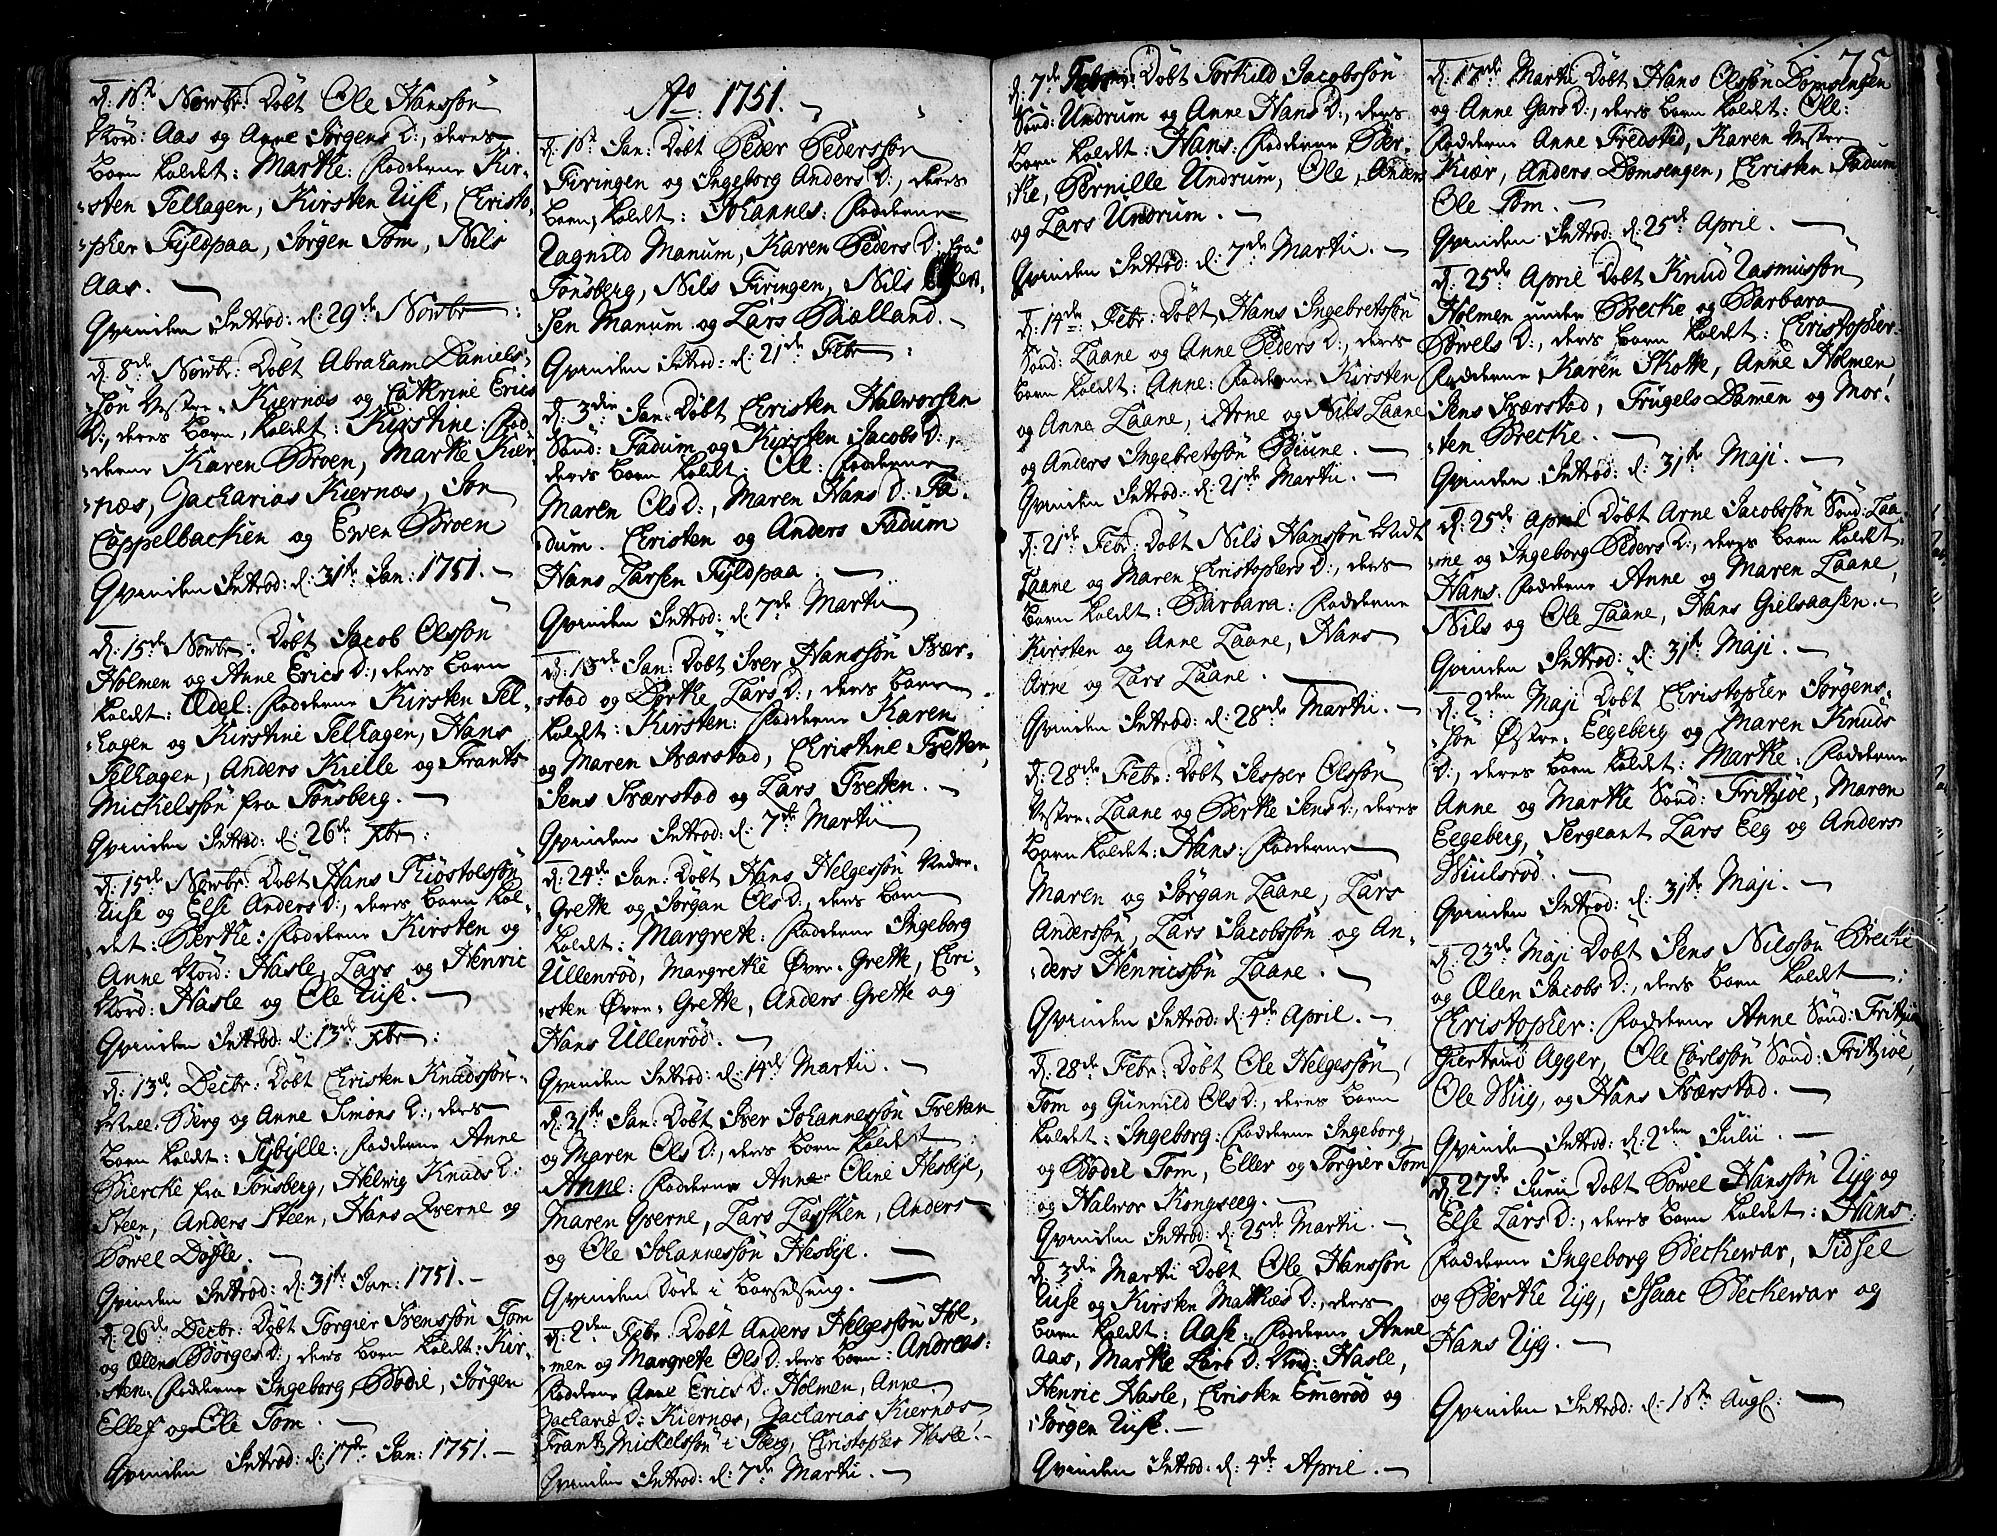 d: 1ste Novbr: Döbt Ole Hanssön
Nord: Aas og Anne Jörgens D:, deres
barn kaldet: Marthe: Fadderne Kir-
sten Felhagen, Kirsten Ruse, Christo-
pher Fyldpaa, Jörgen Tom, Nils
Aas.
Qvinden Introd: d: 29de Novbr:
d: 8de Novbr: Döbt Abraham Daniels-
sön Vestre-Kiernæs og Cathrine Erics
D:, deres barn kaldet: Kirstine: Fad-
derne Karen Broen, Marthe Kier-
næs, Zacharias Kiernæs, Jon
Cappelbacken og Even Broen
Qvinden Introd: d: 31te Jan: 1751.
d: 15de Novbr: Döbt Jacob Olssön
Holmen og Anne Erics D:, deres barn
kaldet: Edel: Fadderne Kirsten Fel-
hagen og Kirstine Felhagen, Hans
Felhagen, Anders Kielle og Frants
Mickelssön fra Tönsberg.
Qvinden Introd: d: 26de Xbr:
d: 15de Novbr: Döbt Hans Tiöstolssön
Ruse og Else Anders D:, deres barn kal-
det: Berthe: Fadderne Kirsten og
Anne Nord: Hasle, Lars og Henric
Nord: Hasle og Ole Ruse.
Qvinden Introd: d: 13de Xbr:
d: 13de Decbr: Döbt Christen Knudssön
Berg og Anne Simons D:, deres
barn kaldet: Sybylle: Fadderne Anne
Biercke fra Tönsberg, Helvig Knuds D:
Steen, Anders Steen, Hans Qverne og
Bövel Döyle.
Qvinden Introd: d: 31te Jan: 1751.
d: 26de Decbr: Döbt Torgier Svenssön Tom
og Olens Börges D:, deres barn kaldet: Kir-
sten: Fadderne Ingeborg, Bodil, Jörgen
Ellef og Ole Tom.
Qvinden Introd: d: 17de Jan: 1751.
Ao 1751.
d: 1ste Jan: Döbt Peder Pederssön
Firingen og Ingeborg Anders D:, deres
barn kaldet: Johannes: Fadderne
Ragnild Manum, Karen Peders D: fra
Tönsberg, Nils Firingen, Nils
sen Manum og Lars Biælland.
Qvinden Introd: d: 21de Febr:
d: 3die Jan: Döbt Christen Halworsen
Sönd: Fadum og Kirsten Jacobs D:,
deres barn kaldet: Ole: Fadderne
Maren Ols D:, Maren Hans D: Fa-
dum. Christen og Anders Fadum
Hans Larsen Fyldpaa.
Qvinden Introd: d: 7de Martii
d: 13de Jan: Döbt Iver Hanssön Svær-
stad og Dorthe Lars D:, deres barn
kaldet: Kirsten: Fadderne Karen
og Maren Sværstad, Christine Fretten,
Jens Sværstad og Lars Fretten.
Qvinden Introd: d: 7de Martii
d: 24de Jan: Döbt Hans Helgessön Nedre-
Grette og Jörgan Ols D:, deres barn
kaldet: Margrete: Fadderne Ingeborg
Ullenröd, Margrethe Övre-Grette, Chri-
sten Övre-Grette, Anders Grette og
Hans Ullenröd.
Qvinden Introd: d: 14de Martii.
d: 31te Jan: Döbt Iver Johannessön Fretan
og Maren Ols D:, deres barn kaldet
Anne: Fadderne Anne Oline Hesbye,
Maren Qverne, Lars Lasken, Anders
og Ole Johannessön Hesbye.
Qvinden döde i barselseng.
d: 2den Febr: Döbt Anders Helgessön Hol-
men og Margrete Ols D: deres barn: Andreas:
Fadderne Anne Erics D: Holmen, Anne
Zacharie D: Kiernæs, Zacharias Kiernæs
Frantz Mickelssön i Tberg, Christopher Hasle.
Qvinden Introd: d: 7de Martii.
75
d: 7de Febr: Döbt Torkild Jacobssön
Sönd: Undrum og Anne Hans D:, deres
barn kaldet: Hans: Fadderne Ber-
the, Pernille Undrum, Ole, Anders
og Lars Undrum.
Qvinden Introd: d: 7de Martii.
d: 14de Febr: Döbt Hans Ingebretssön
Sönd: Laane og Anne Peders D:, deres
barn kaldet: Anne: Fadderne Kirsten
og Anne Laane, Arne og Nils Laane
og Anders Ingebretssön Biune.
Qvinden Introd: d: 21de Martii.
d: 21de Febr: Döbt Nils Hanssön
Laane og Maren Christophers D:, deres
barn kaldet: Barbara: Fadderne
Kirsten og Anne Laane, Hans
Arne og Lars Laane.
Qvinden Introd: d: 28de Martii.
d: 28de Febr: Döbt Jesper Olssön
Vestre-Laane og Berthe Jens D:, deres
barn kaldet: Hans: Fadderne
Maren og Jörgan Laane, Lars
Anderssön, Lars Jacobssön og An-
ders Henricssön Laane.
Qvinden Introd: d: 4de April.
d: 28de Febr: Döbt Ole Helgessön
Tom og Gunnild Ols D:, deres barn
kaldet: Ingeborg: Fadderne Ingeborg,
og Bodil Tom, Eller og Torgier Tom
og Halwor Kongseeg.
Qvinden Introd: d: 25de Martii.
d: 3die Martii Döbt Ole Hanssön
Ruse og Kirsten Mathæs D:, deres
barn kaldet: Aase: Fadderne Anne
Aas, Marthe Lars D: Nord: Hasle,
Henric Hasle, Christen Emeröd og
Jörgen Ruse.
Qvinden Introd: d: 4de April.
d: 17de Martii Döbt Hans Olssön Domsengen
og Anne Gars D:, deres barn kaldet: Ole:
Fadderne Anne Fredstad, Karen Vestre
Kiær, Anders Domsengen, Christen Fadum
Ole Tom.
Qvinden Introd: d: 25de April.
d: 25de April Döbt Knud Rasmussön
Holmen under Brecke og Barbara
Bövels D:, deres barn kaldet: Christopher:
Fadderne Karen Skotte, Anne Holmen
Jens Sværstad, Trugels Damen og Mor-
ten Brecke.
Qvinden Introd: d: 31te Maji.
d: 25de April Döbt Arne Jacobssön Sönd: Laa-
ne og Ingeborg Peders D:, deres barn kaldet:
Hans: Fadderne Anne og Maren Laane,
Nils og Ole Laane, Hans Gielsaasen.
Qvinden Introd: d: 31te Maji.
d: 2den Maji Döbt Christopher Jörgens-
sön Östre-Eegeberg og Maren Knuds
D:, deres barn kaldet: Marthe: Fadderne
Anne og Marthe Sönd: Fritzöe, Maren
Eegeberg, Sergeant Lars Eeg og Anders
Wiulsröd.
Qvinden Introd: d: 31te Maji.
d: 23de Maji Döbt Jens Nilssön Brecke
og Ølen Jacobs D:, deres barn kaldet
Christopher: Fadderne Anne Sönd: Fritzöe
Giertrud Agger, Ole Carlssön Sönd: Fritzöe,
Ole Wiig, og Hans Sværstad.
Qvinden Introd: d: 2den Julii.
d: 27de Junii Döbt Bövel Hanssön Ryg og
Else Lars D:, deres barn kaldet: Hans:
Fadderne Ingeborg Beckewar, Sidsel
og Berthe Ryg, Isaac Beckewar og
Hans Ryg.
Qvinden Introd: d: 18de Aug: